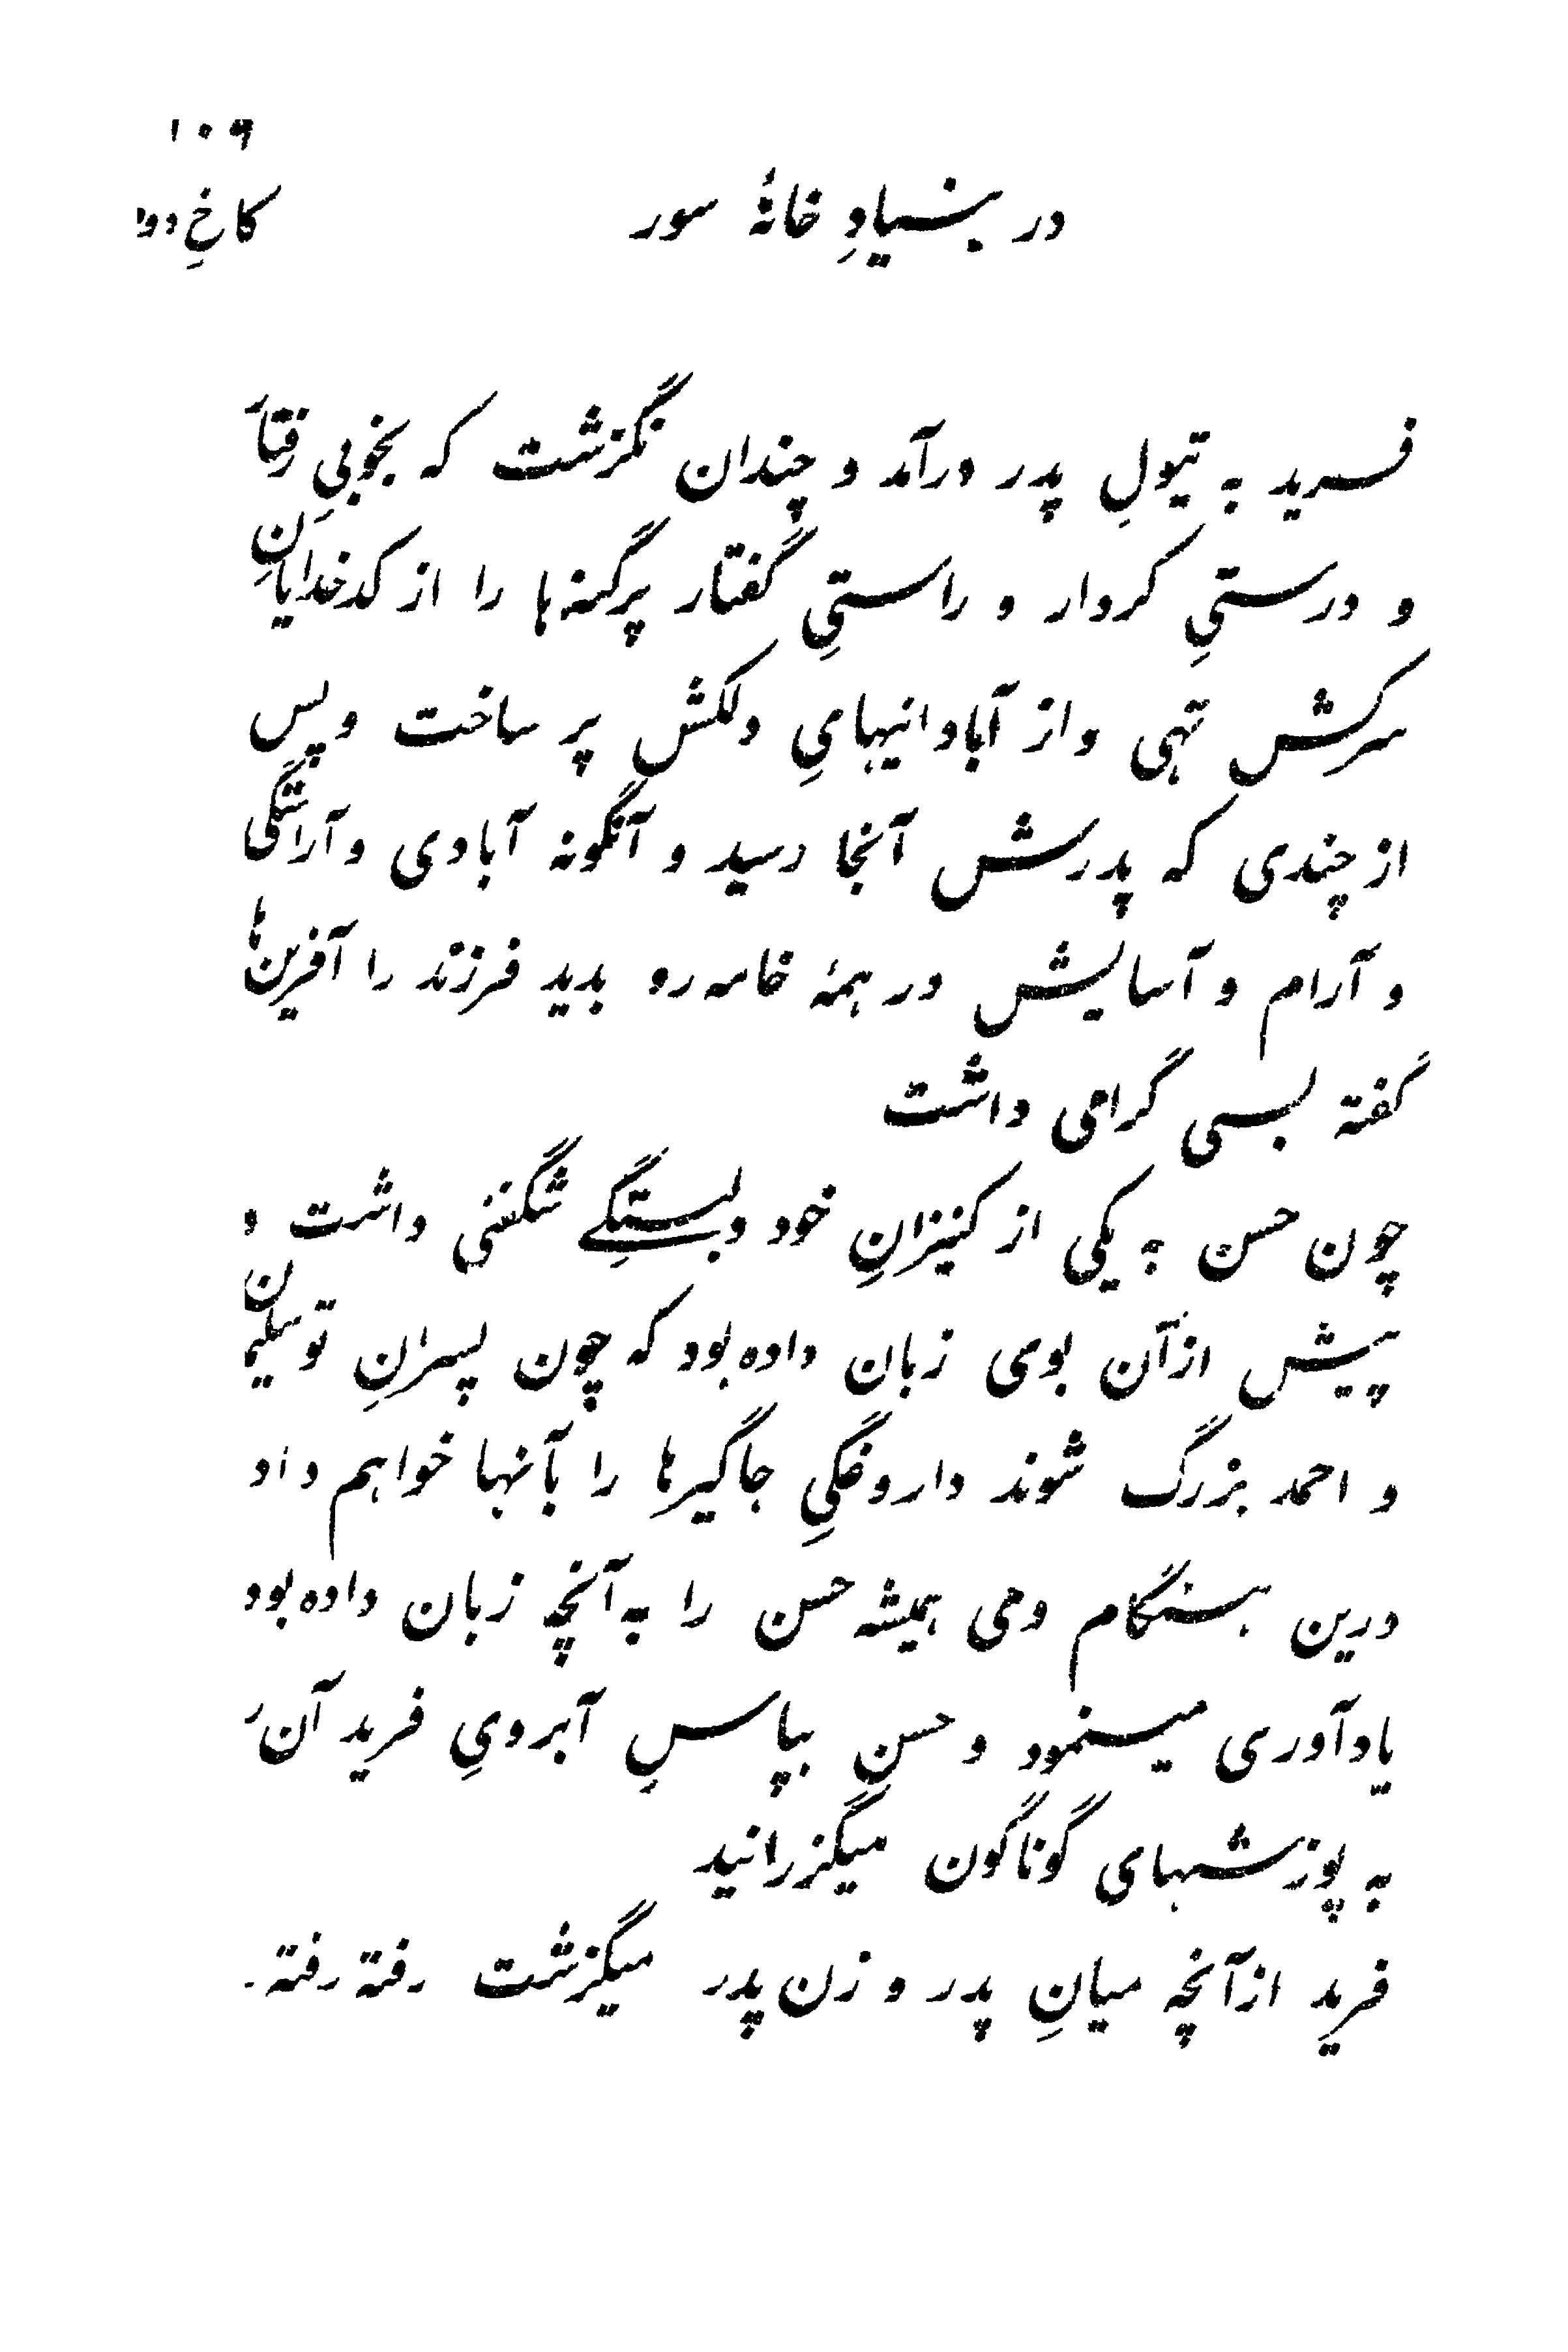 ۱۰۶
در بنیادِ خانهٔ سور
کاخِ دو
فرید به تیولِ پدر درآمد و چندان نگزشت که بخوبیِ رفتار
و درستیِ کردار و راستیِ گفتار پرگنه‌ها را از کدخدایانِ
سرکش تهی و از آبادانیهایِ دلکش پر ساخت و پس
از چندی که پدرش آنجا رسید و آنگونه آبادی و آراستگی
و آرام و آسایش در همهٔ خامه‌رو بدید فرزند را آفرین‌ها
گفته بسی گرامی داشت
چون حسن به یکی از کنیزانِ خود دلبستگیِ شگفتی داشت و
پیش از آن بوی زبان داده بود که چون پسرانِ تو سلیمان
و احمد بزرگ شوند داروغگیِ جاگیرها را بآنها خواهم داد
درین هنگام وی همیشه حسن را به آنچه زبان داده بود
یادآوری مینمود و حسن بپاسِ آبرویِ فرید آن
به پوزشهای گوناگون میگزرانید
فرید از آنچه میانِ پدر و زن پدر میگزشت رفته رفته